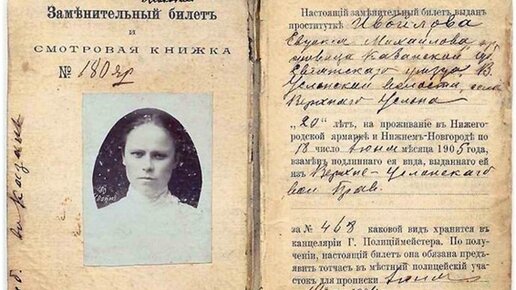 Замѣнительный билетъ
и
СМОТРОВАЯ КНИЖКА
№ 180 яр
Настоящій замѣнительный билетъ выданъ
проституткѣ
Евдокія Михайлова
Казанской
уѣзда
волости села
Верхняго Услона
„20" лѣтъ, на проживаніе въ Нижего-
родской ярмаркѣ и Нижнемъ-Новгородѣ по
18 число іюня мѣсяца 1905 года,
взамѣнъ подлиннаго ея вида, выданнаго ей
изъ Верхне-Услонскаго
вол. Прав.
за № 468 каковой видъ хранится въ
канцеляріи Г. Полиціймейстера. По полу-
ченіи, настоящій билетъ она обязана предъ-
явить тотчасъ въ мѣстный полицейскій учас-
токъ для прописки